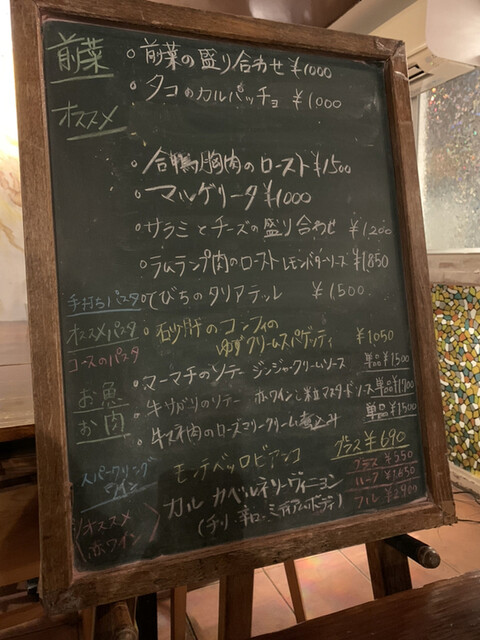 前菜 ○前菜の盛り合わせ ¥1000
○タコのカルパッチョ ¥1000
オススメ
○合鴨胸肉のロースト ¥1500
○マルゲリータ ¥1000
○サラミとチーズの盛り合わせ ¥1200
○ラムランプ肉のロースト レモンバターソース ¥1850
手打ちパスタ ○てびちのタリアテッレ ¥1,500
オススメパスタ ○砂肝のコンフィの
コースのパスタ ゆずクリームスパゲッティ ¥1050
お魚 ○マーマチのソテー ジンジャークリームソース 単品¥1500
お肉 ○牛サガリのソテー 赤ワインと粒マスタードソース 単品¥1700
○牛スネ肉のローズマリークリーム煮込み 単品¥1500
スパークリングワイン モンテベッロビアンコ グラス¥690
オススメ赤ワイン カル カベルネソーヴィニヨン グラス¥550
(チリ 辛口 ミディアムボディ) ハーフ
フル ¥2900